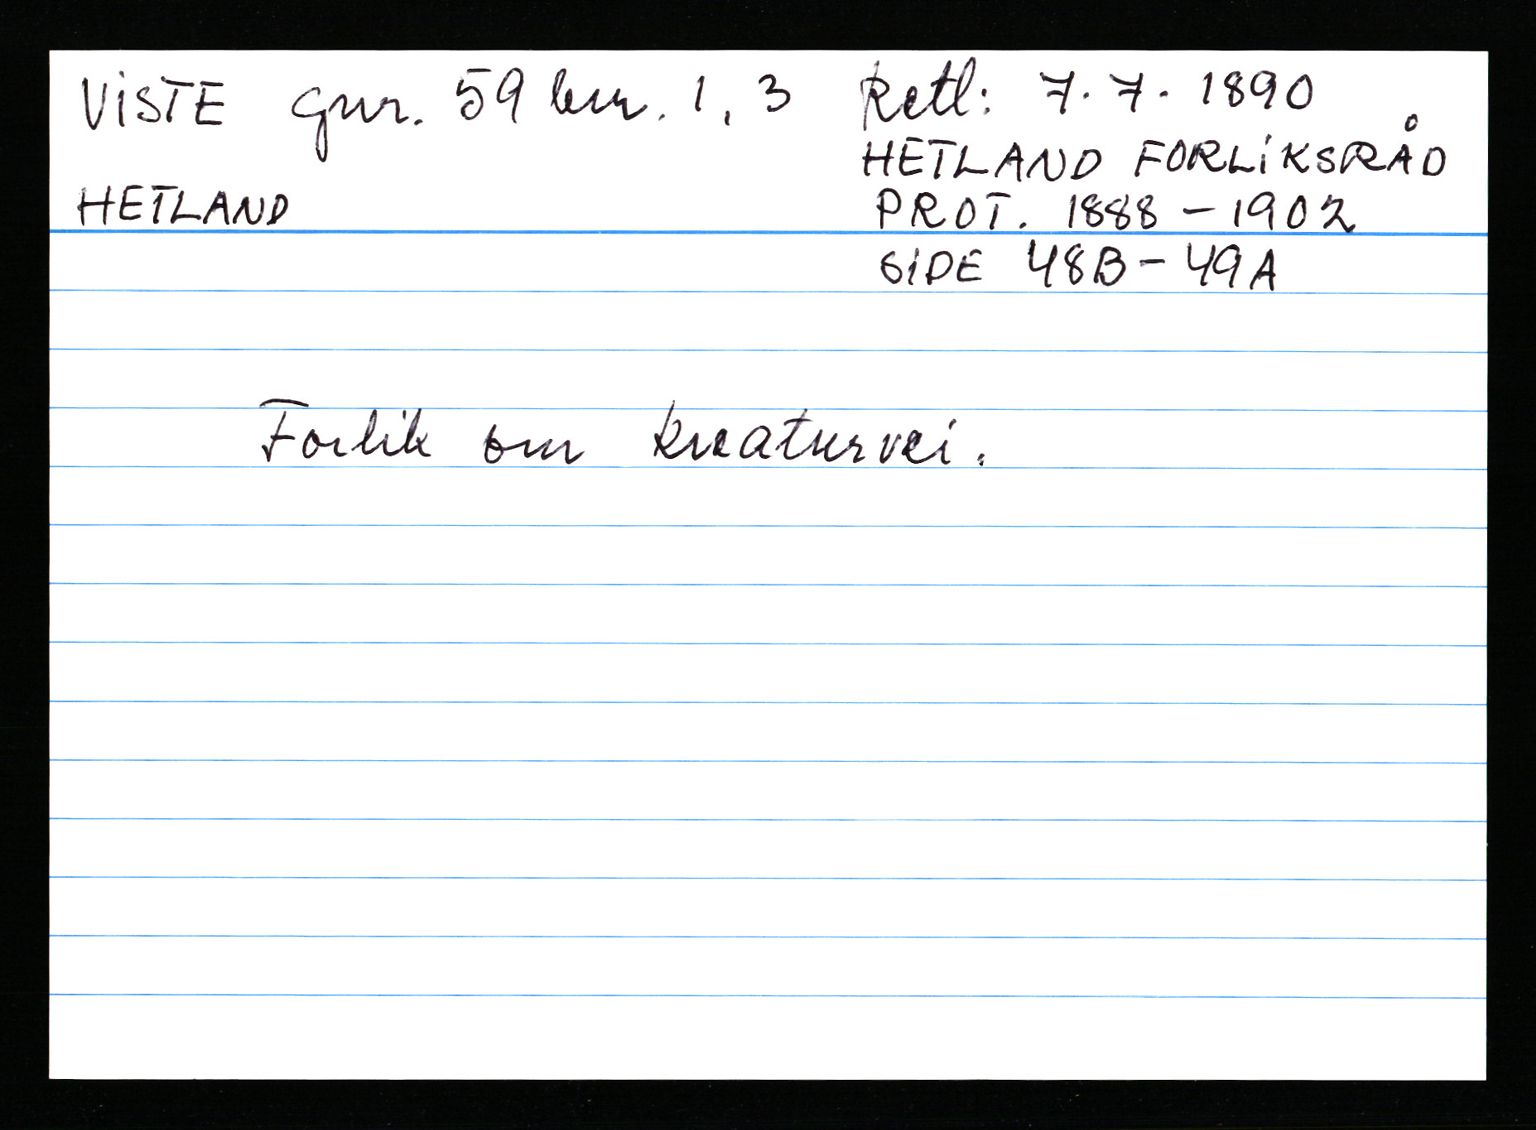 VISTE gnr. 59 bnr. 1, 3 Retl: 7.7.1890
HETLAND FORLIKSRÅD
HETLAND PROT. 1888 - 1902
SIDE 48B - 49A
Forlik om kreaturvei.